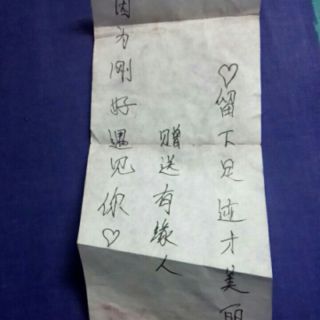 因为刚好遇见你♡
赠送有缘人
♡留下足迹才美丽